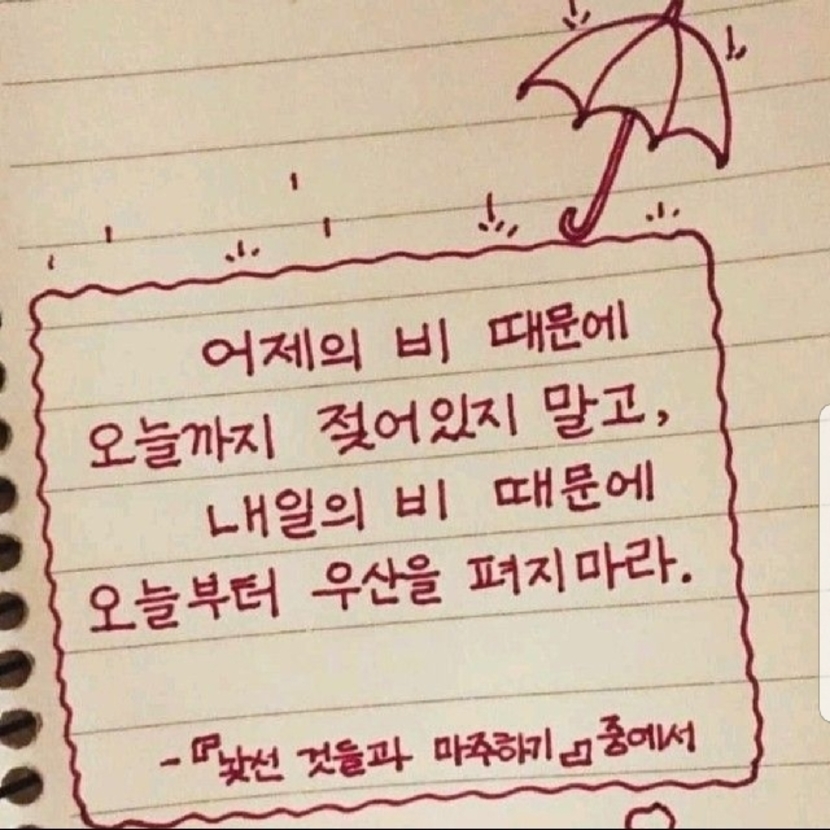 어제의 비 때문에
오늘까지 젖어있지 말고,
내일의 비 때문에
오늘부터 우산을 펴지마라.
-『낯선 것들과 마주하기』중에서